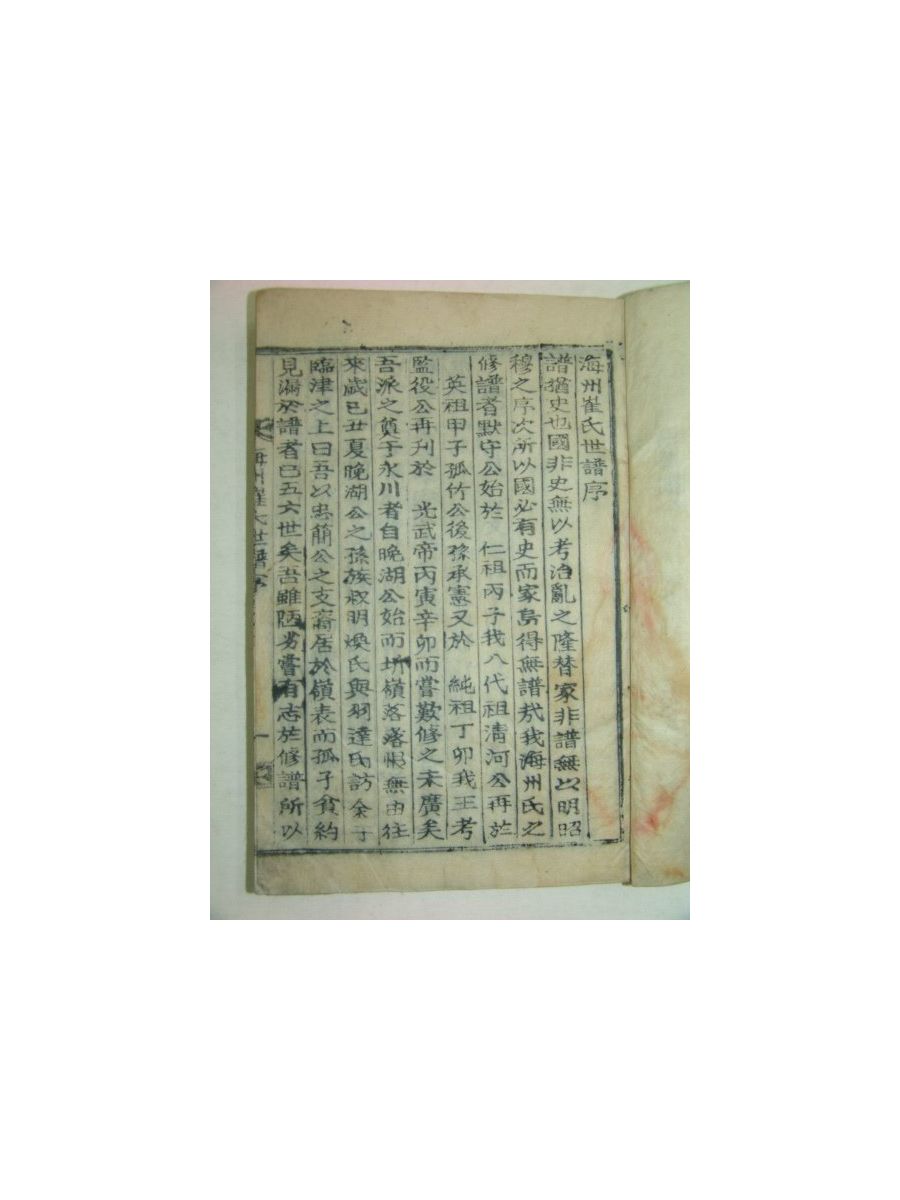 海州崔氏世譜序
譜猶史也國非史無以考治亂之隆替家非譜無以明昭
穆之序次所以國必有史而家烏得無譜哉我海州氏之
修譜者默守公始於 仁祖丙子我八代祖清河公再於
英祖甲子孤竹公後孫承憲又於 純祖丁卯我王考
監役公再刊於 光武帝丙寅辛卯而嘗歎修之未廣矣
吾派之貫于永川者自晚湖公始而圻嶺落落恨無由往
來歲己丑夏晚湖公之孫族叔明煥氏與羽達氏訪余于
臨津之上曰吾以忠簡公之支裔居於嶺表而孤子貧約
見漏於譜者已五六世矣吾雖陋劣嘗有志於修譜所以
海州崔氏世譜序
一